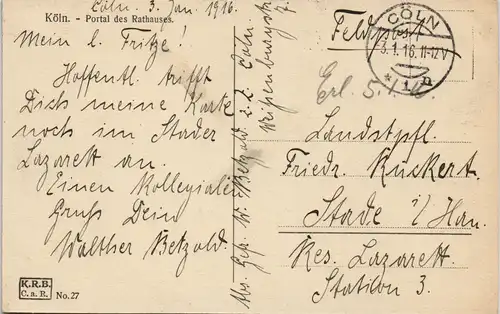 Cöln. 3. Jan. 1916.
Köln. - Portal des Rathauses.
Mein l. Fritze!
Hoffentl. trifft
Dich meine Karte
noch im Stader
Lazarett an.
Einen Kollegialen
Gruß Dein
Walther Betzold.
K.R.B.
C.a.R.
No. 27
Abs. Gefr. W. Betzold z. Z. Cöln
Weißenburgstr.
Feldpost
CÖLN
3.1.16.11-12V
* 1 n
Erl. 5./1.
Landstpfl.
Friedr. Ruskert.
Stade i/Han.
Res. Lazarett.
Station 3.